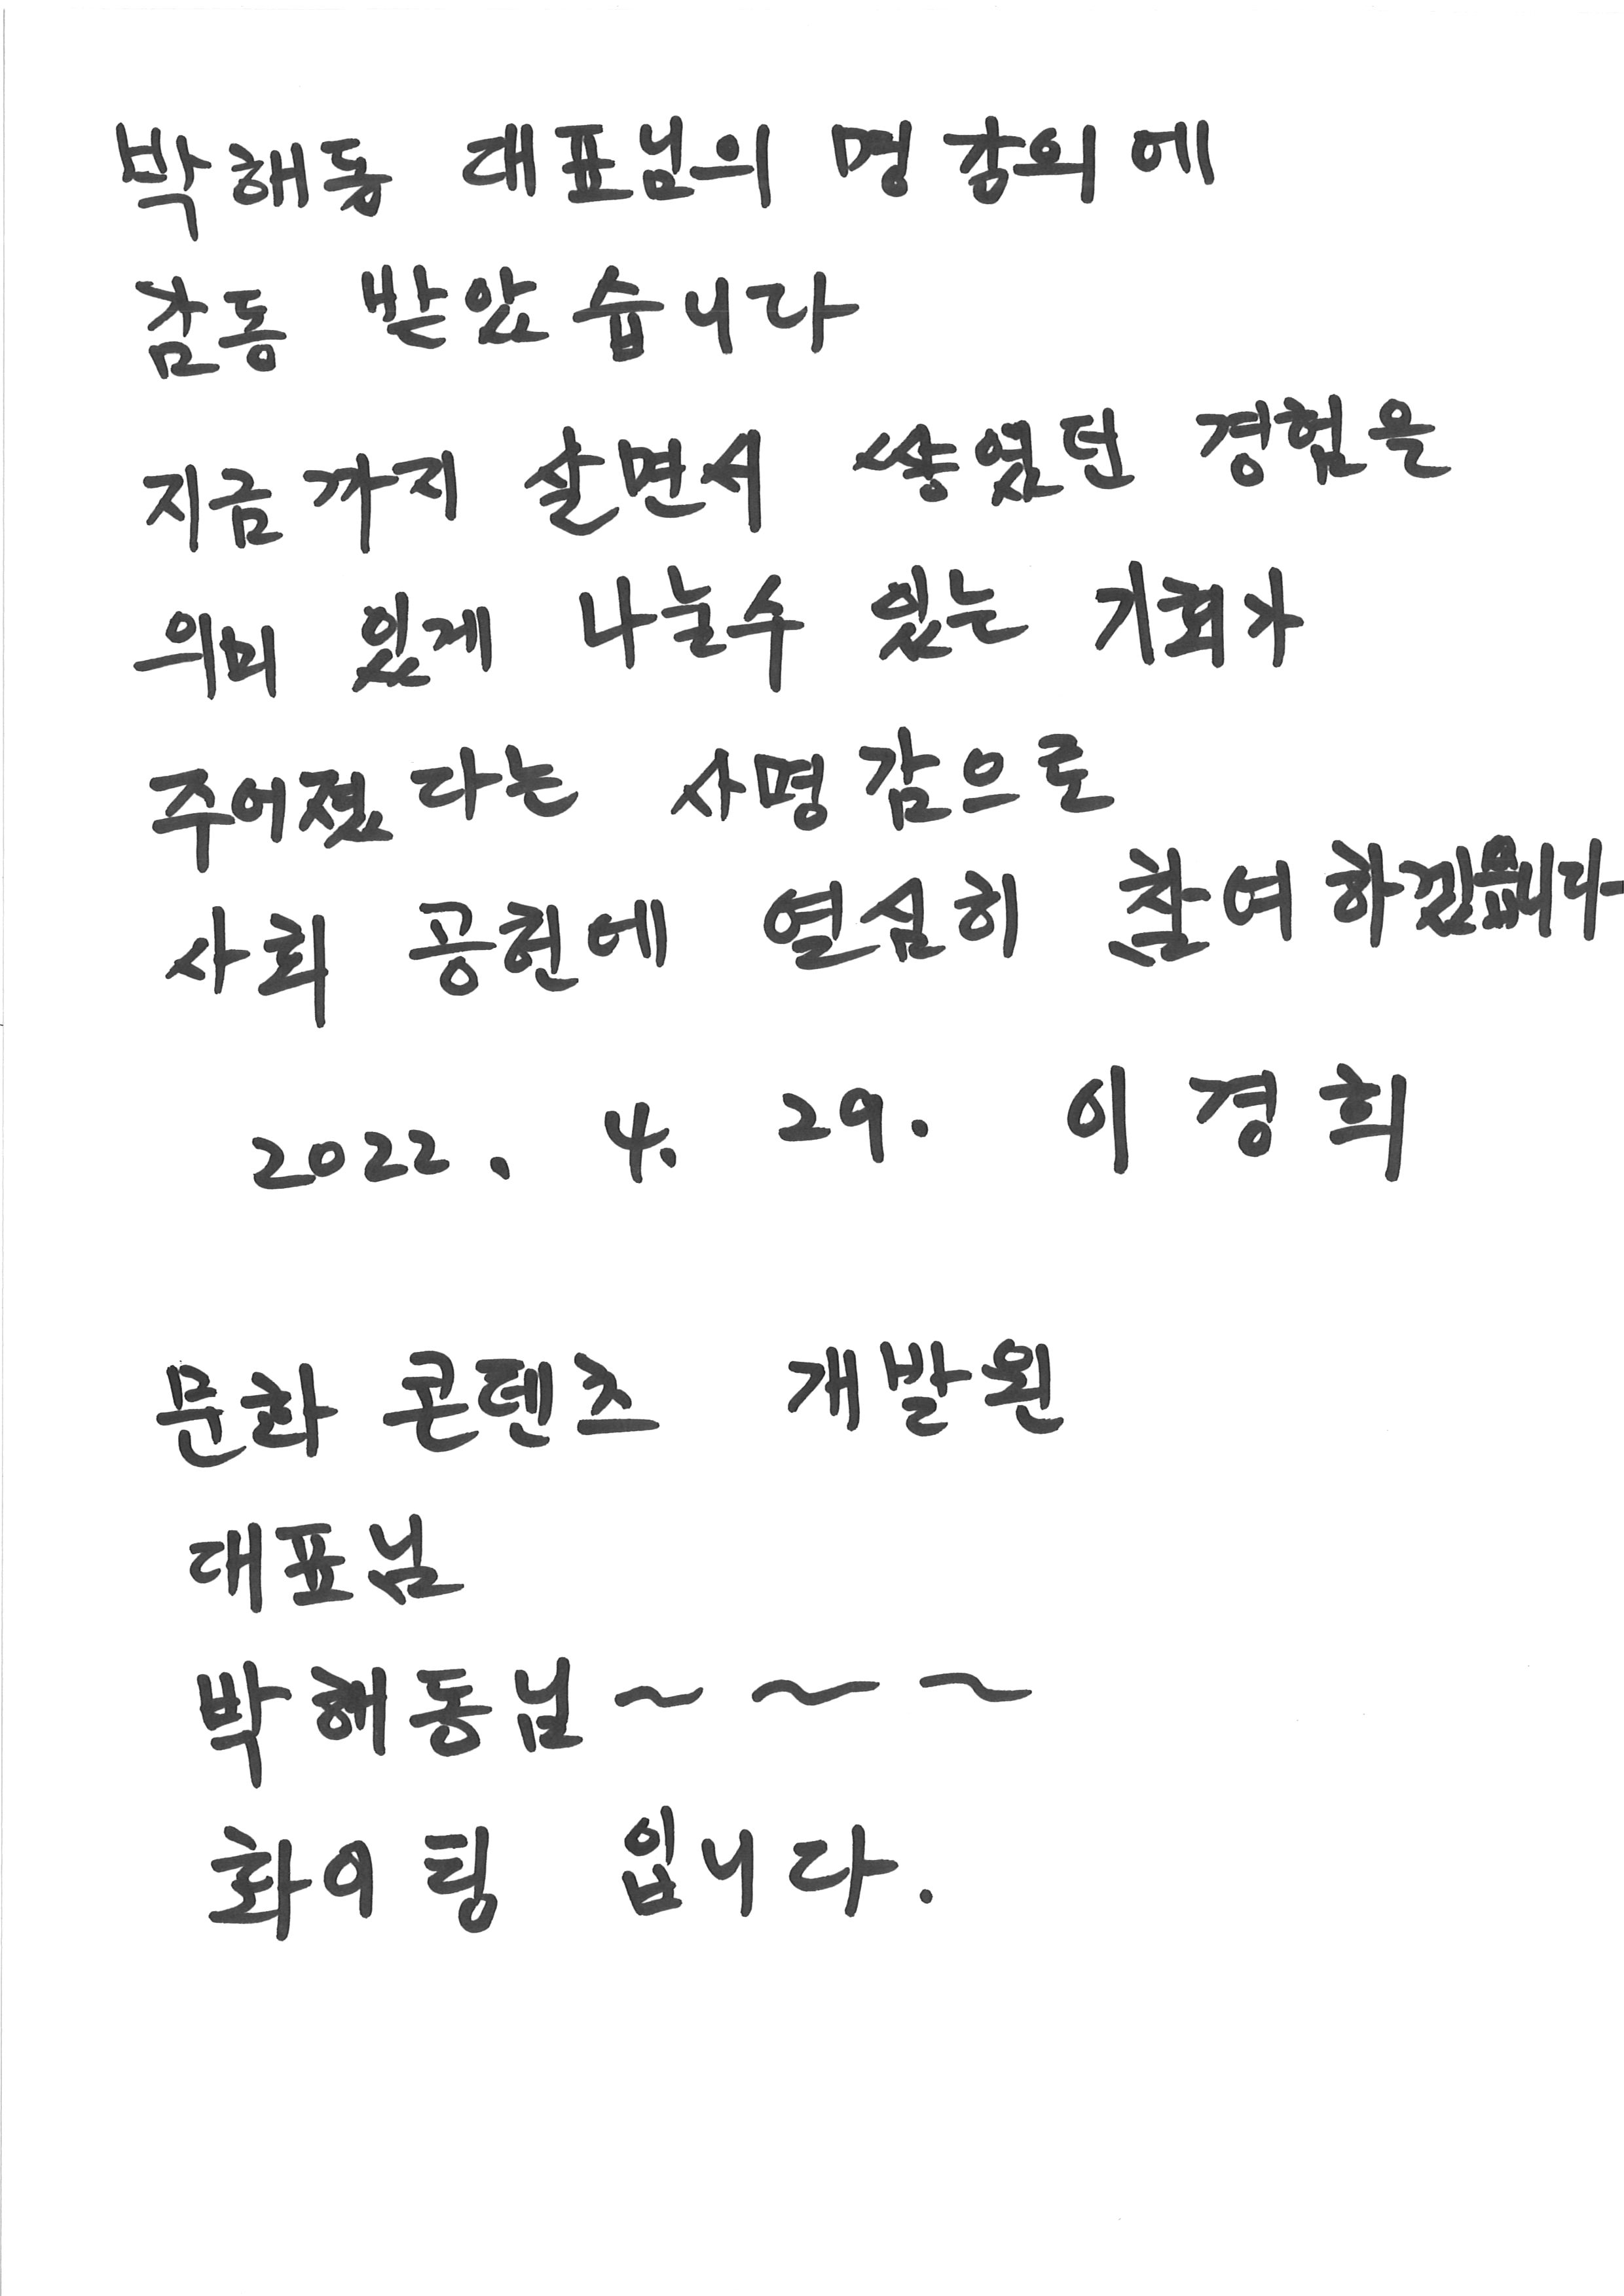 박해동 대표님의 명 강의에
감동 받았습니다
지금까지 살면서 쌓였던 경험을
의미 있게 나눌수 있는 기회가
주어졌다는 사명감으로
사회 공헌에 열심히 참여 하겠습니다
2022. 4. 29. 이경희
문화 콘텐츠 개발원
대표님
박해동님~ ~ ~
화이팅 입니다.